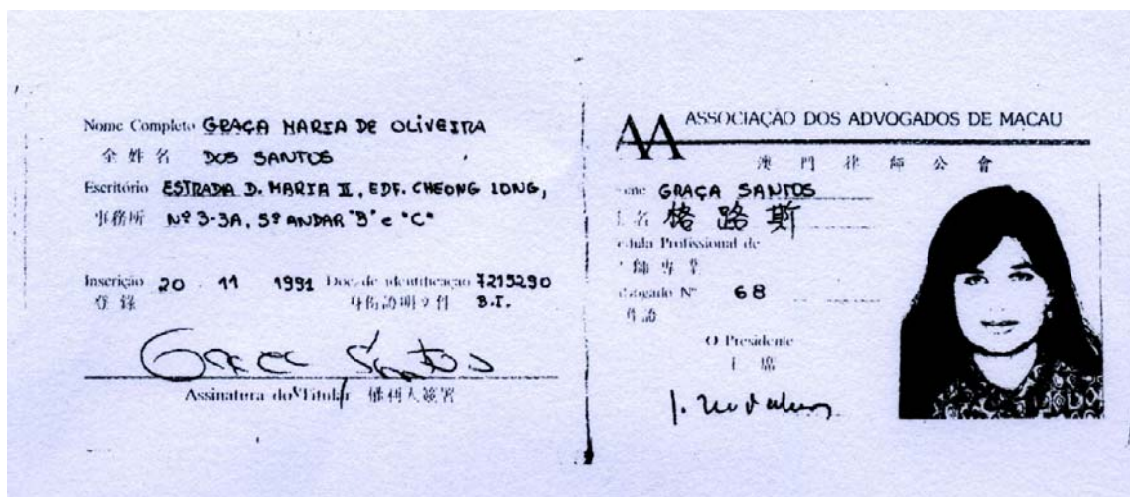 Nome Completo GRAÇA MARIA DE OLIVEIRA
全 姓 名 DOS SANTOS
Escritório ESTRADA D. MARIA II, EDF. CHEONG LONG,
事務所 Nº 3-3A, 5º ANDAR "B" e "C"
Inscrição 20 11 1991 Doc. de identificação 7215290
登 錄 身份證明文件 B.I.
Graça Santos
Assinatura do Titular 權利人簽署
AA ASSOCIAÇÃO DOS ADVOGADOS DE MACAU
澳 門 律 師 公 會
GRAÇA SANTOS
名 格 路 斯
Profissional de
師 專 業
Nº 68
O Presidente
主 席